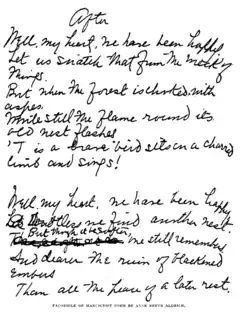 After
Well, my heart, we have been happy
Let us snatch that from the wreck of
things.
But when the forest is choked with
ashes
While still the flame round its
old nest flashes
'T is a brave bird sits on a charred
limb and sings!
Well, my heart, we have been happy
us find another nest.
But though it be softer,
we still remember
And dearer the ruin of blackened
embers
Than all the peace of a later rest.
FACSIMILE OF MANUSCRIPT POEM BY ANNE REEVE ALDRICH.